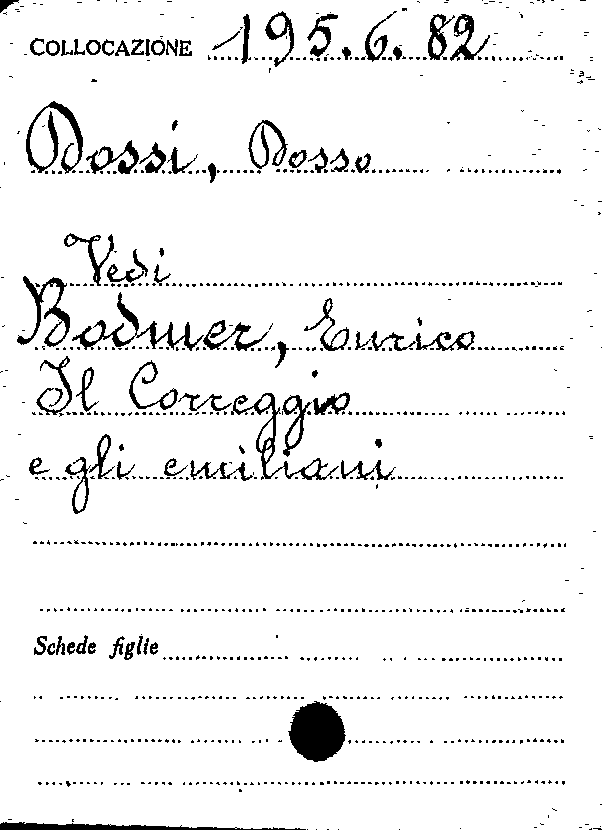 COLLOCAZIONE 195.6.82
Dossi, Dosso
Vedi
Bodmer, Enrico
Il Correggio
e gli emiliani
Schede figlie